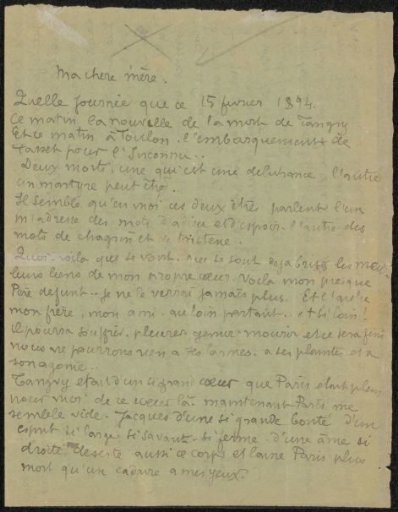 Ma chère mère.
Quelle journée que ce 15 fevrier 1894.
Ce matin la nouvelle de la mort de Tanguy
Et ce matin à Toulon l'embarquement de
Tasset pour l'Inconnu..
Deux morts, une qui est une delivrance, l'autre
un martyre peut être.
Il semble qu'en moi ces deux être parlent l'un
m'adresse des mots d'adieu et d'espoir l'autre des
mots de chagrin et de tristesse.
Quoi voila que se sont brisés les meil
leurs liens de mon propre cœur. Voila mon presque
Père defunt.. je ne le verrai jamais plus. Et l'autre
mon frère, mon ami au loin partant.. et si loin!
Il pourra souffrir, pleurer gemir mourir et ce sera fini
nous ne pourrons rien a ses larmes. a ses plaintes et a
son agonie..
Tanguy etait d'un si grand cœur que Paris etait plein
pour moi de ce cœur là maintenant Paris me
semble vide. Jacques d'une si grande bonté d'un
esprit si large, si savant, si ferme d'une âme si
droite deserte aussi ce corps et laisse Paris plus
mort qu'un cadavre a mes yeux.